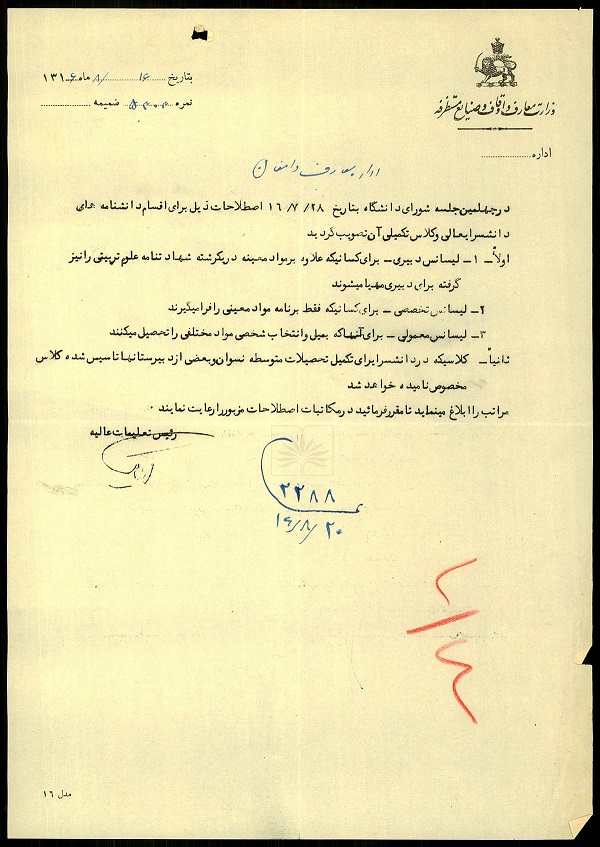 وزارت معارف و اوقاف و صنایع مستظرفه
بتاریخ ۱۶ ماه ۸/ ۱۳۱۶
نمره ضمیمه
اداره
اداره معارف دامغان
درچهلمین جلسه شورای دانشگاه بتاریخ ۱۶/۷/۲۸ اصطلاحات ذیل برای اقسام دانشنامه های
دانشسرایعالی وکلاس تکمیلی آن تصویب گردید
اولاً ـ ۱ـ لیسانس دبیری ـ برای کسانیکه علاوه برمواد معینه دریکرشته شهادتنامه علوم تربیتی رانیز
گرفته برای دبیری مهیا میشوند
۲ـ لیسانس تخصصی ـ برای کسانیکه فقط برنامه مواد معینی رافرامیگیرند
۳ـ لیسانس معمولی ـ برای آنهاکه بمیل وانتخاب شخصی مواد مختلفی راتحصیل میکنند
ثانیاً ـ کلاسیکه دردانشسرابرای تکمیل تحصیلات متوسطه نسوان وبعضی ازدبیرستانها تاسیس شده کلاس
مخصوص نامیده خواهد شد
مراتب راابلاغ مینماید تامقررفرمائید درمکاتبات اصطلاحات مزبوررارعایت نمایند ۰
رئیس تعلیمات عالیه
۲۲۸۸
۱۶/۸/۲۰
مدل ۱۶